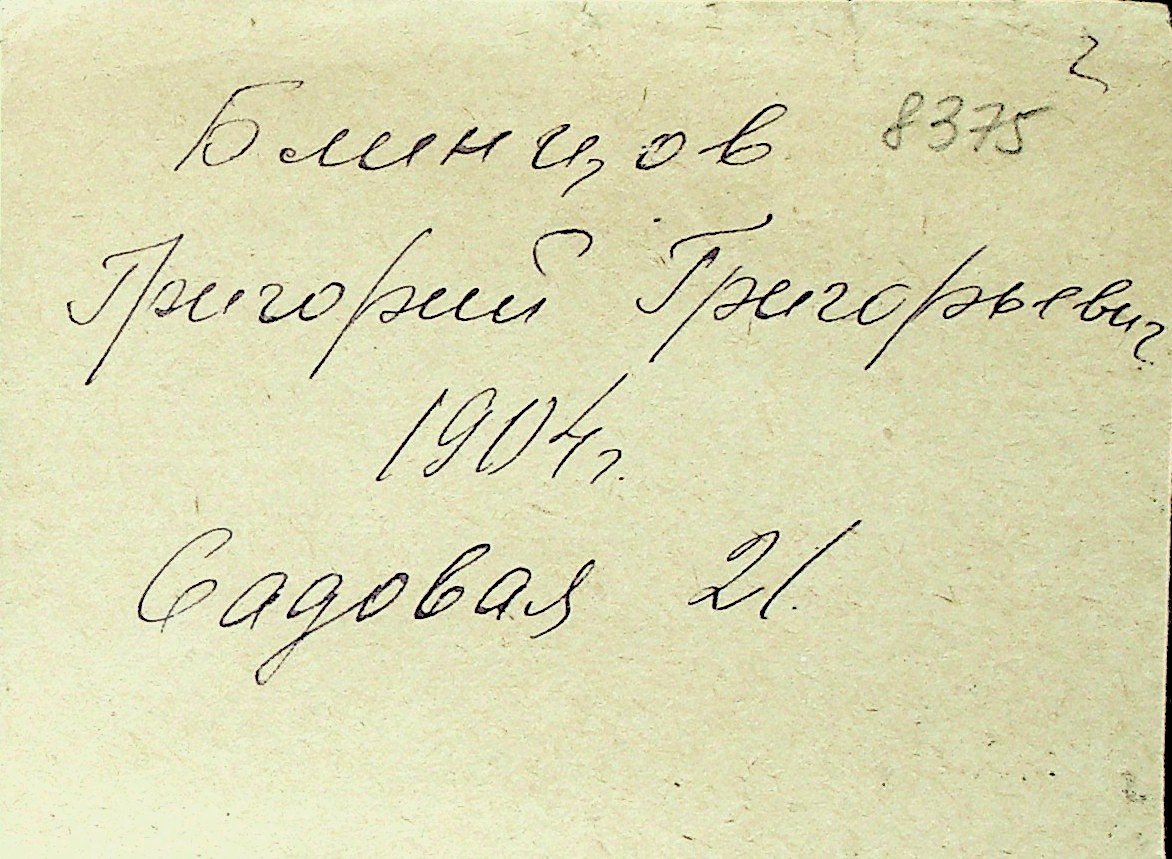 Блинцов 8375
Григорий Григорьевич
1904г.
Садовая 21.